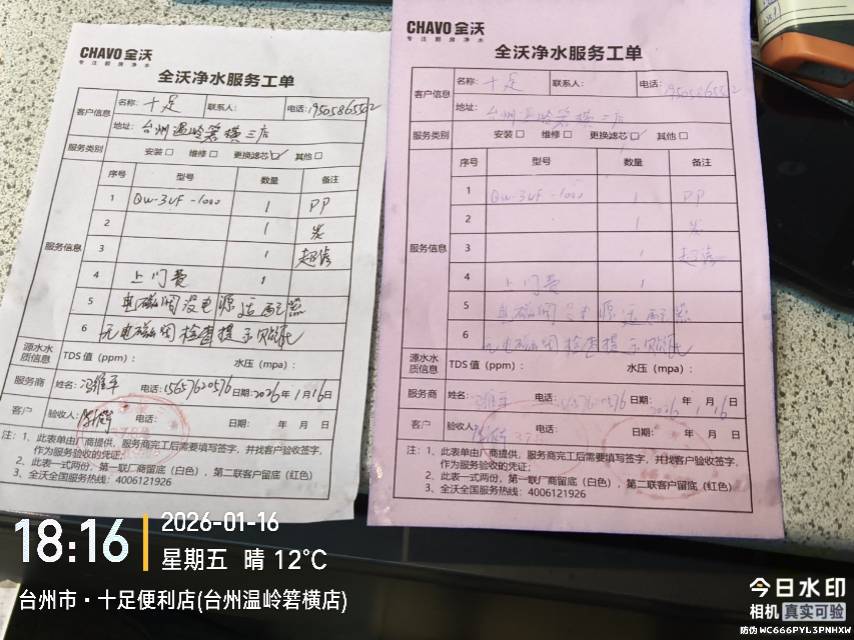 CHAVO 全沃
专注厨房净水
全沃净水服务工单
客户信息
名称：十足
联系人：
电话：19505865502
地址：台州温岭箬横三店
服务类别
安装□ 维修□ 更换滤芯☑ 其他□
服务信息
序号 型号 数量 备注
1 QW-3UF-1000 1 PP
2 1 炭
3 1 超滤
4 上门费 1
5 电磁阀没电源
6 无电磁阀检查提示
源水水质信息
TDS 值（ppm）： 水压（mpa）：
服务商
姓名：冯维平 电话：15657620576 日期：2026年1月16日
客户
验收人： 电话： 日期： 年 月 日
注：1、此表单由厂商提供，服务商完工后需要填写签字，并找客户验收签字，
作为服务验收的凭证；
2、此表一式两份，第一联厂商留底（白色），第二联客户留底（红色）
3、全沃全国服务热线：4006121926
CHAVO 全沃
专注厨房净水
全沃净水服务工单
客户信息
名称：十足
联系人：
电话：19505865502
地址：台州温岭箬横三店
服务类别
安装□ 维修□ 更换滤芯☑ 其他□
服务信息
序号 型号 数量 备注
1 QW-3UF-1000 1 PP
2 1 炭
3 1 超滤
4 上门费 1
5 电磁阀没电源
6 无电磁阀检查提示
源水水质信息
TDS 值（ppm）： 水压（mpa）：
服务商
姓名：冯维平 电话：15657620576 日期：2026年1月16日
客户
验收人： 电话： 日期： 年 月 日
注：1、此表单由厂商提供，服务商完工后需要填写签字，并找客户验收签字，
作为服务验收的凭证；
2、此表一式两份，第一联厂商留底（白色），第二联客户留底（红色）
3、全沃全国服务热线：4006121926
18:16
2026-01-16
星期五 晴 12°C
台州市·十足便利店(台州温岭箬横店)
今日水印
相机 真实可验
防伪 WC666PYL3PNHXW